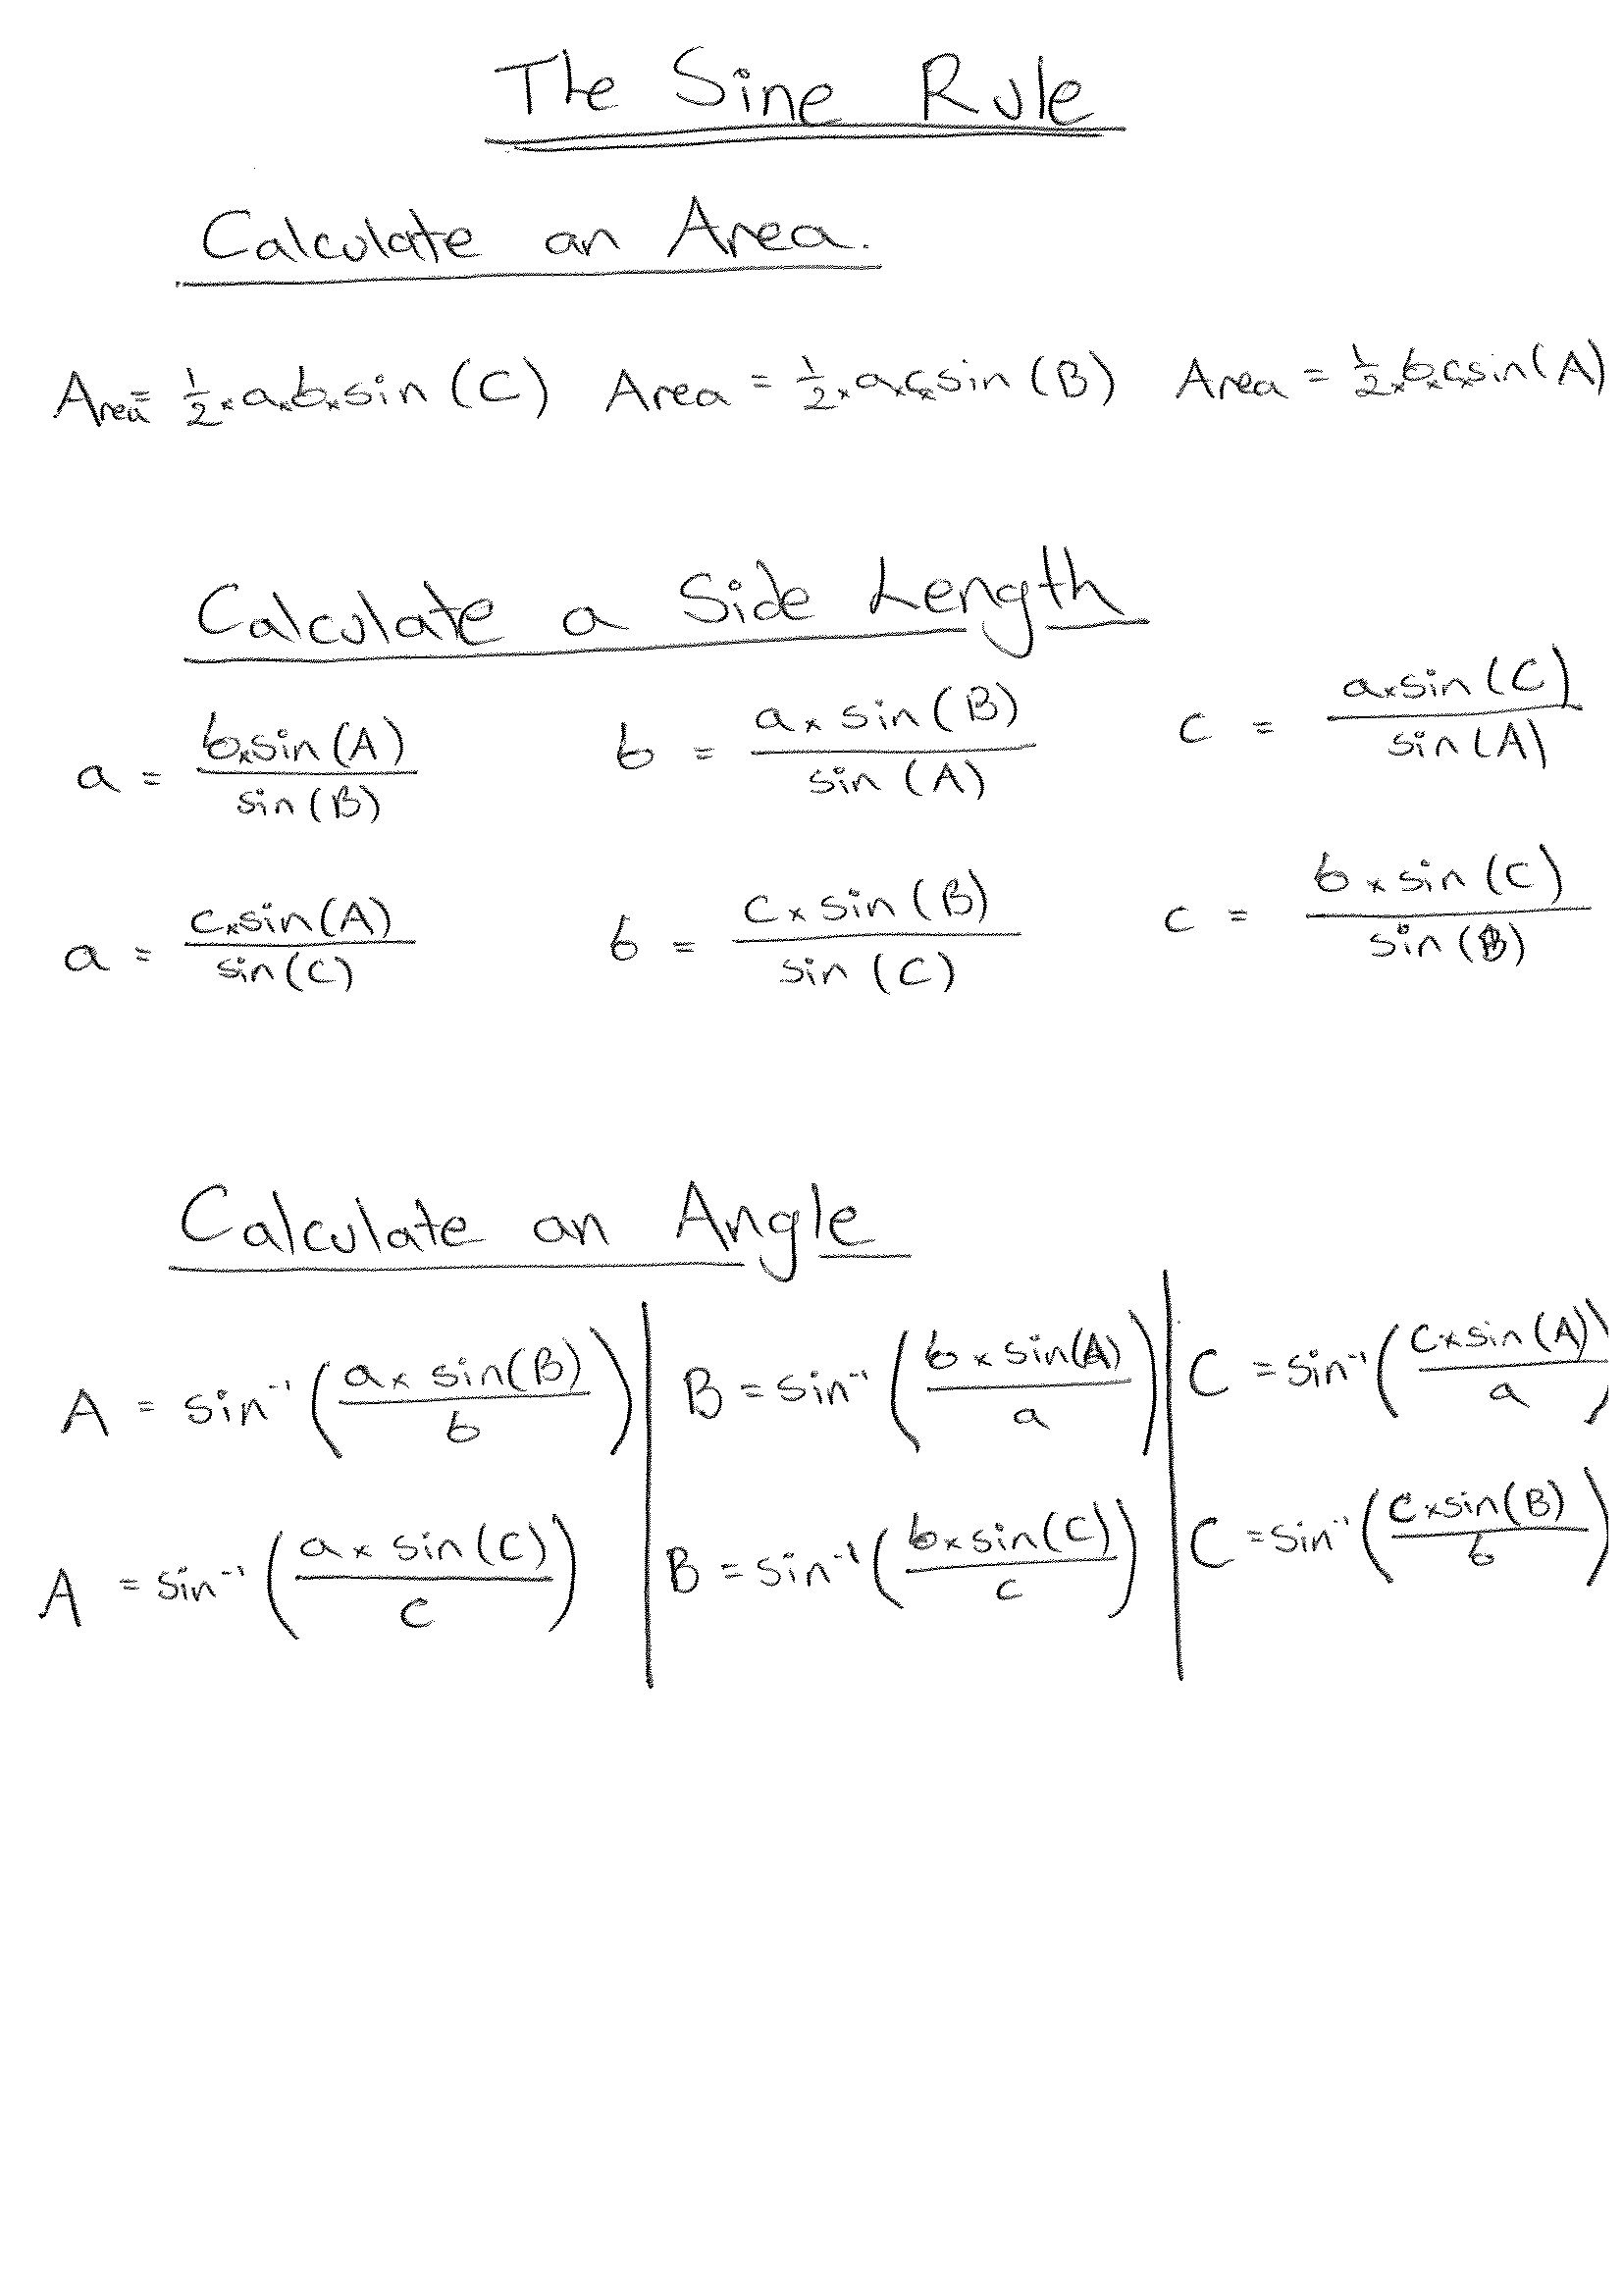 The Sine Rule
Calculate an Area.
Area = 1/2 × a × b × sin (C) Area = 1/2 × a × c × sin (B) Area = 1/2 × b × c × sin (A)
Calculate a Side Length
a = b × sin (A) / sin (B) b = a × sin (B) / sin (A) c = a × sin (C) / sin (A)
a = c × sin (A) / sin (C) b = c × sin (B) / sin (C) c = b × sin (C) / sin (B)
Calculate an Angle
A = sin⁻¹ (a × sin (B) / b) B = sin⁻¹ (b × sin (A) / a) C = sin⁻¹ (c × sin (A) / a)
A = sin⁻¹ (a × sin (C) / c) B = sin⁻¹ (b × sin (C) / c) C = sin⁻¹ (c × sin (B) / b)